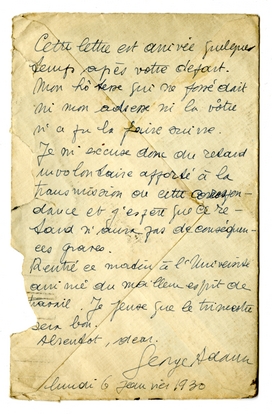 Cette lettre est arrivée quelques
temps après votre départ.
Mon hôtesse qui ne possédait
ni mon adresse ni la vôtre
n'a pu la faire suivre.
Je m'excuse donc du retard
involontaire apporté à la
transmission de cette correspon-
dance et j'espère que ce re-
tard n'aura pas de conséquen-
ces graves.
Rentré ce matin à l'Université
animé du meilleur esprit de
travail. Je pense que le trimestre
sera bon.
A bientôt,
George
Lundi 6 Janvier 1930